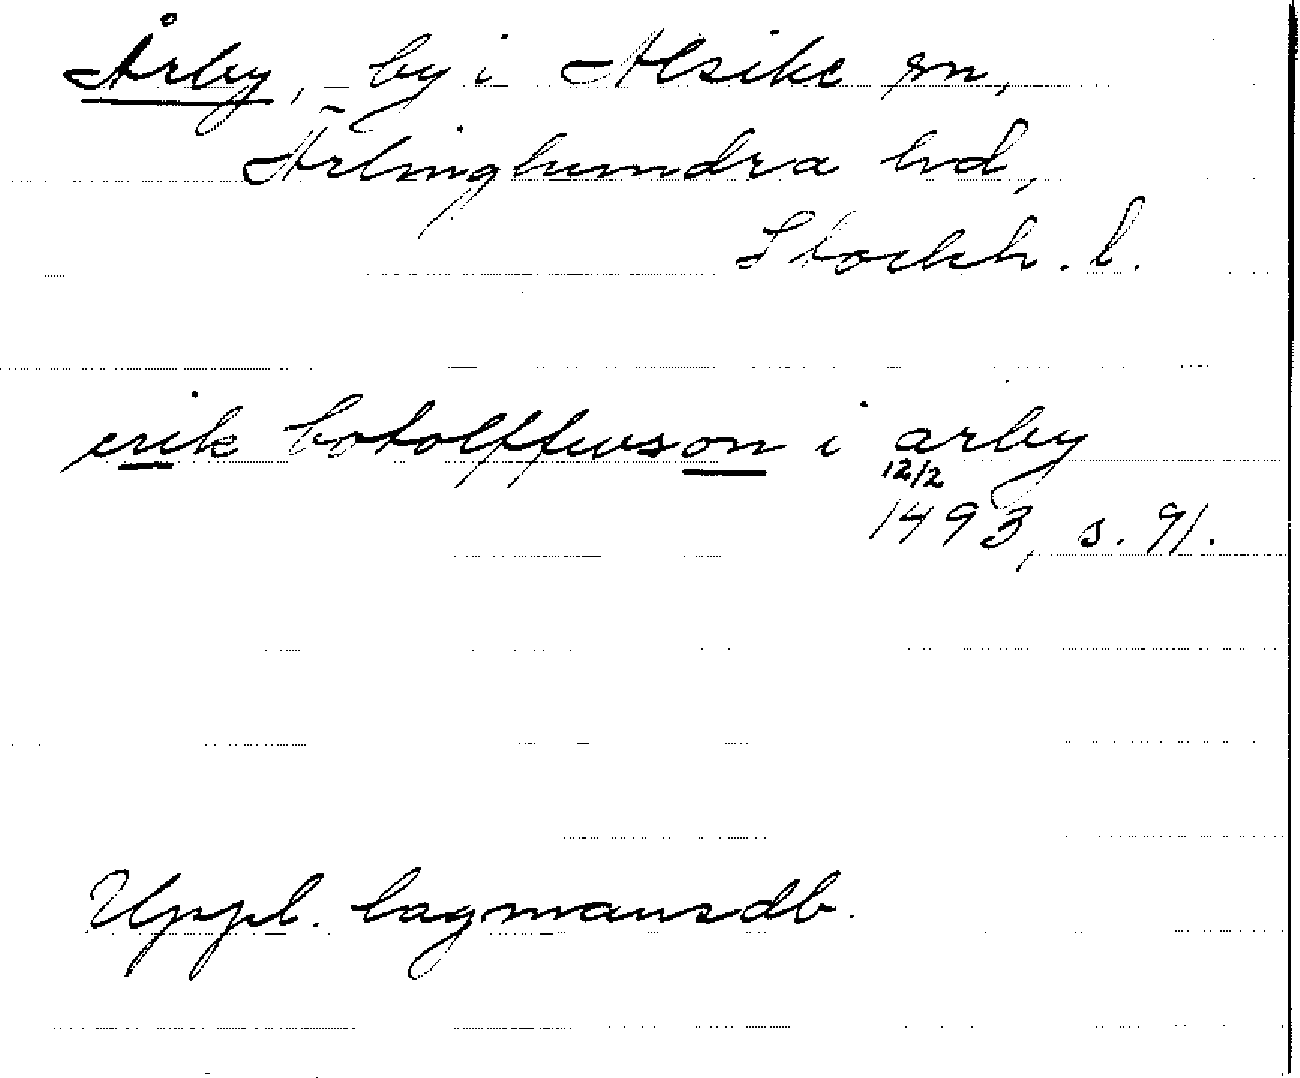 Årby, by i Alsike sn,
Ärlinghundra hd,
Stockh. l.
erik botolffwson i arby
12/2
1493, s. 91.
Uppl. lagmansdb.